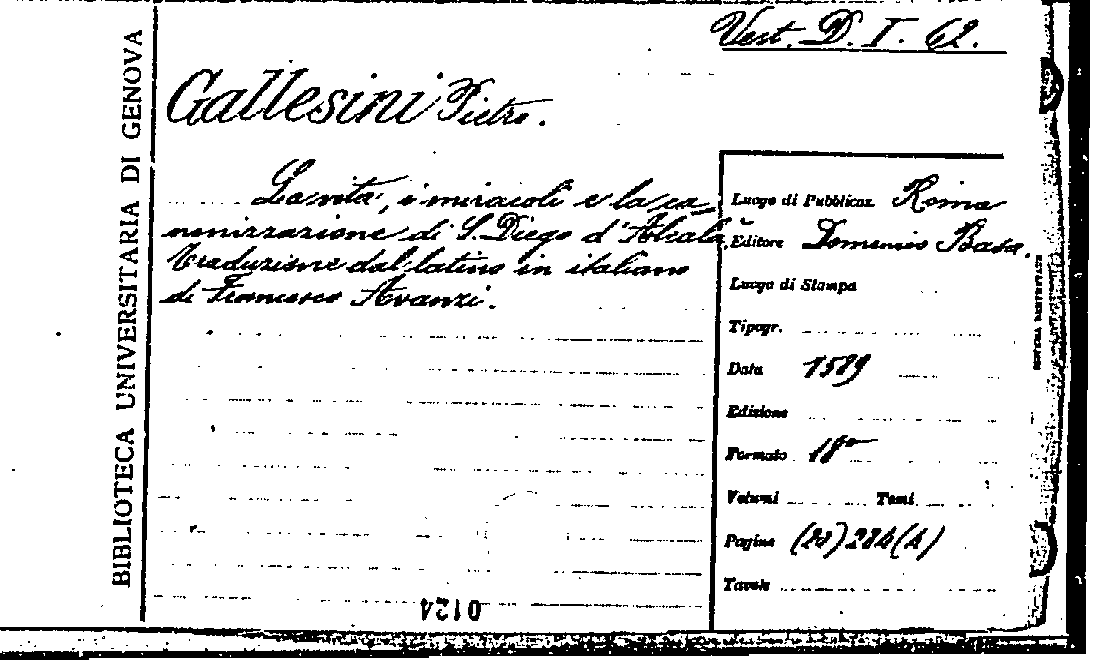 Vest. D. I. 62.
BIBLIOTECA UNIVERSITARIA DI GENOVA
Gallesini Pietro.
La vita, i miracoli e la ca_
nonizzazione di S. Diego d'Alcalà
traduzione dal latino in italiano
di Francesco Avanzi.
Luogo di Pubblicaz. Roma
Editore Domenico Basa.
Luogo di Stampa
Tipogr.
Data 1589
Edizione
Formato 18º
Volumi Tomi
Pagine (20) 284 (4)
Tavole
0124